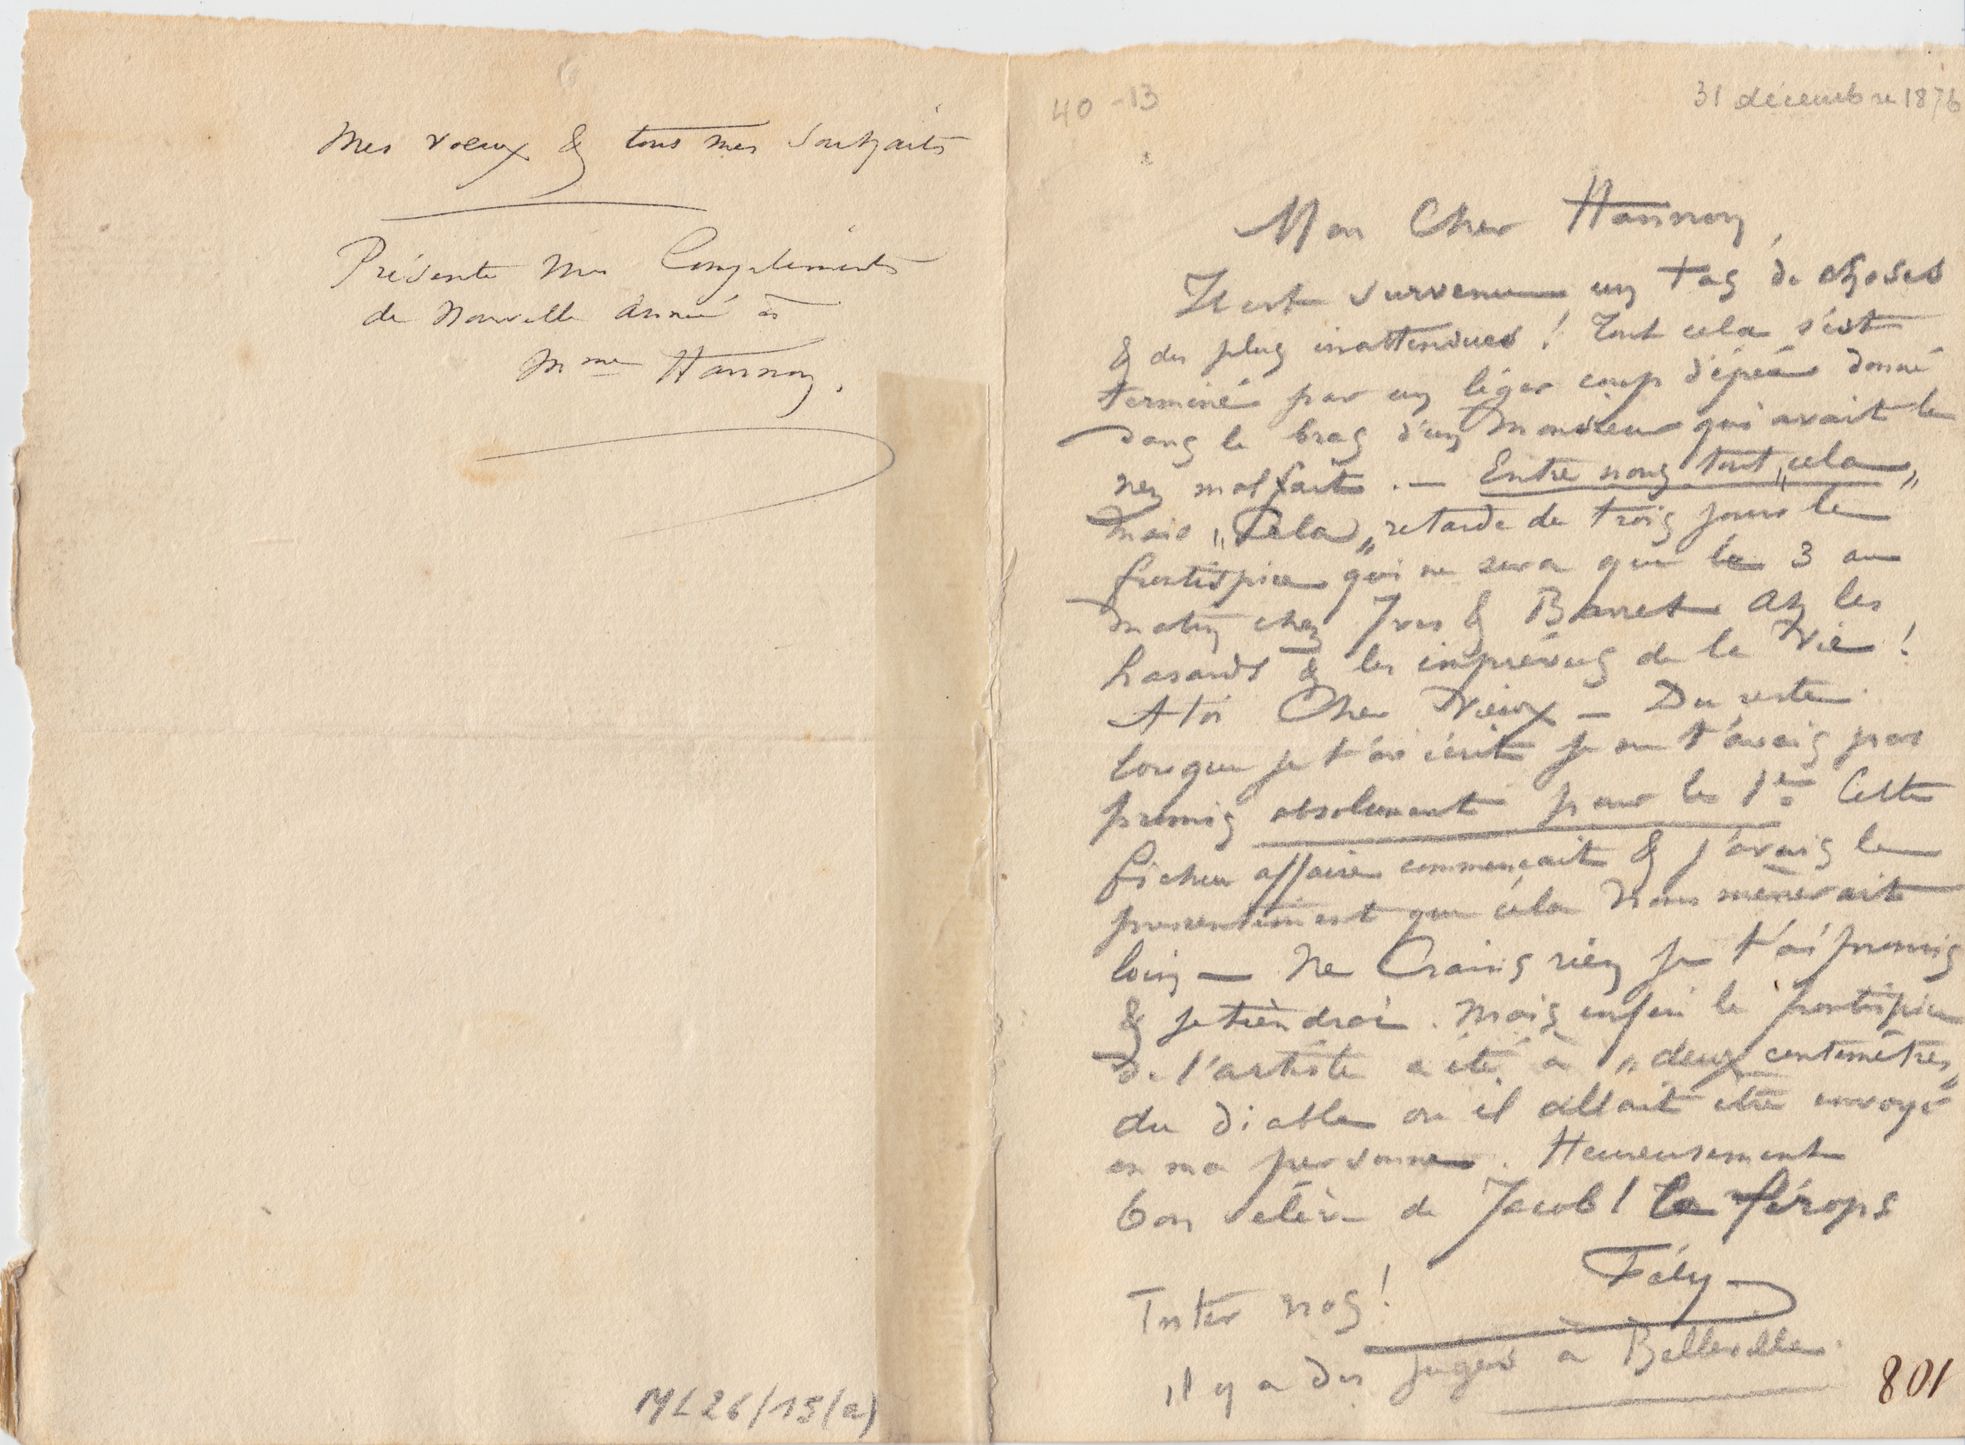 Mes vœux & tous mes souhaits
Présente mes Compliments
de Nouvelle année à
Mme Hannon.
ML 26/15(a)
40-13
31 décembre 1876
Mon Cher Hannon,
Il est survenu un tas de choses
& des plus inattendues ! Tout cela s'est
terminé par un léger coup d'épée donné
dans le bras d'un Monsieur qui avait le
nez mal fait. — Entre nous tout „cela„
Mais „Cela„ retarde de trois jours le
frontispice qui ne sera que le 3 au
matin chez Ives & Barret Ah les
hasards & les imprévus de la Vie !
A toi Cher Vieux — Du reste
lorsque je t'ai écrit je ne t'avais pas
promis absolument pour le 1er Cette
fichue affaire commençait & j'avais le
pressentiment que cela nous mènerait
loin — Ne Crains rien je t'ai promis
& je tiendrai. Mais enfin le frontispice
de l'artiste a été à „deux centimètres„
du diable où il allait être envoyé
en ma personne. Heureusement
bon élève de Jacob !
Fély
Inter nos !
il y a des juges à Belleville.
801